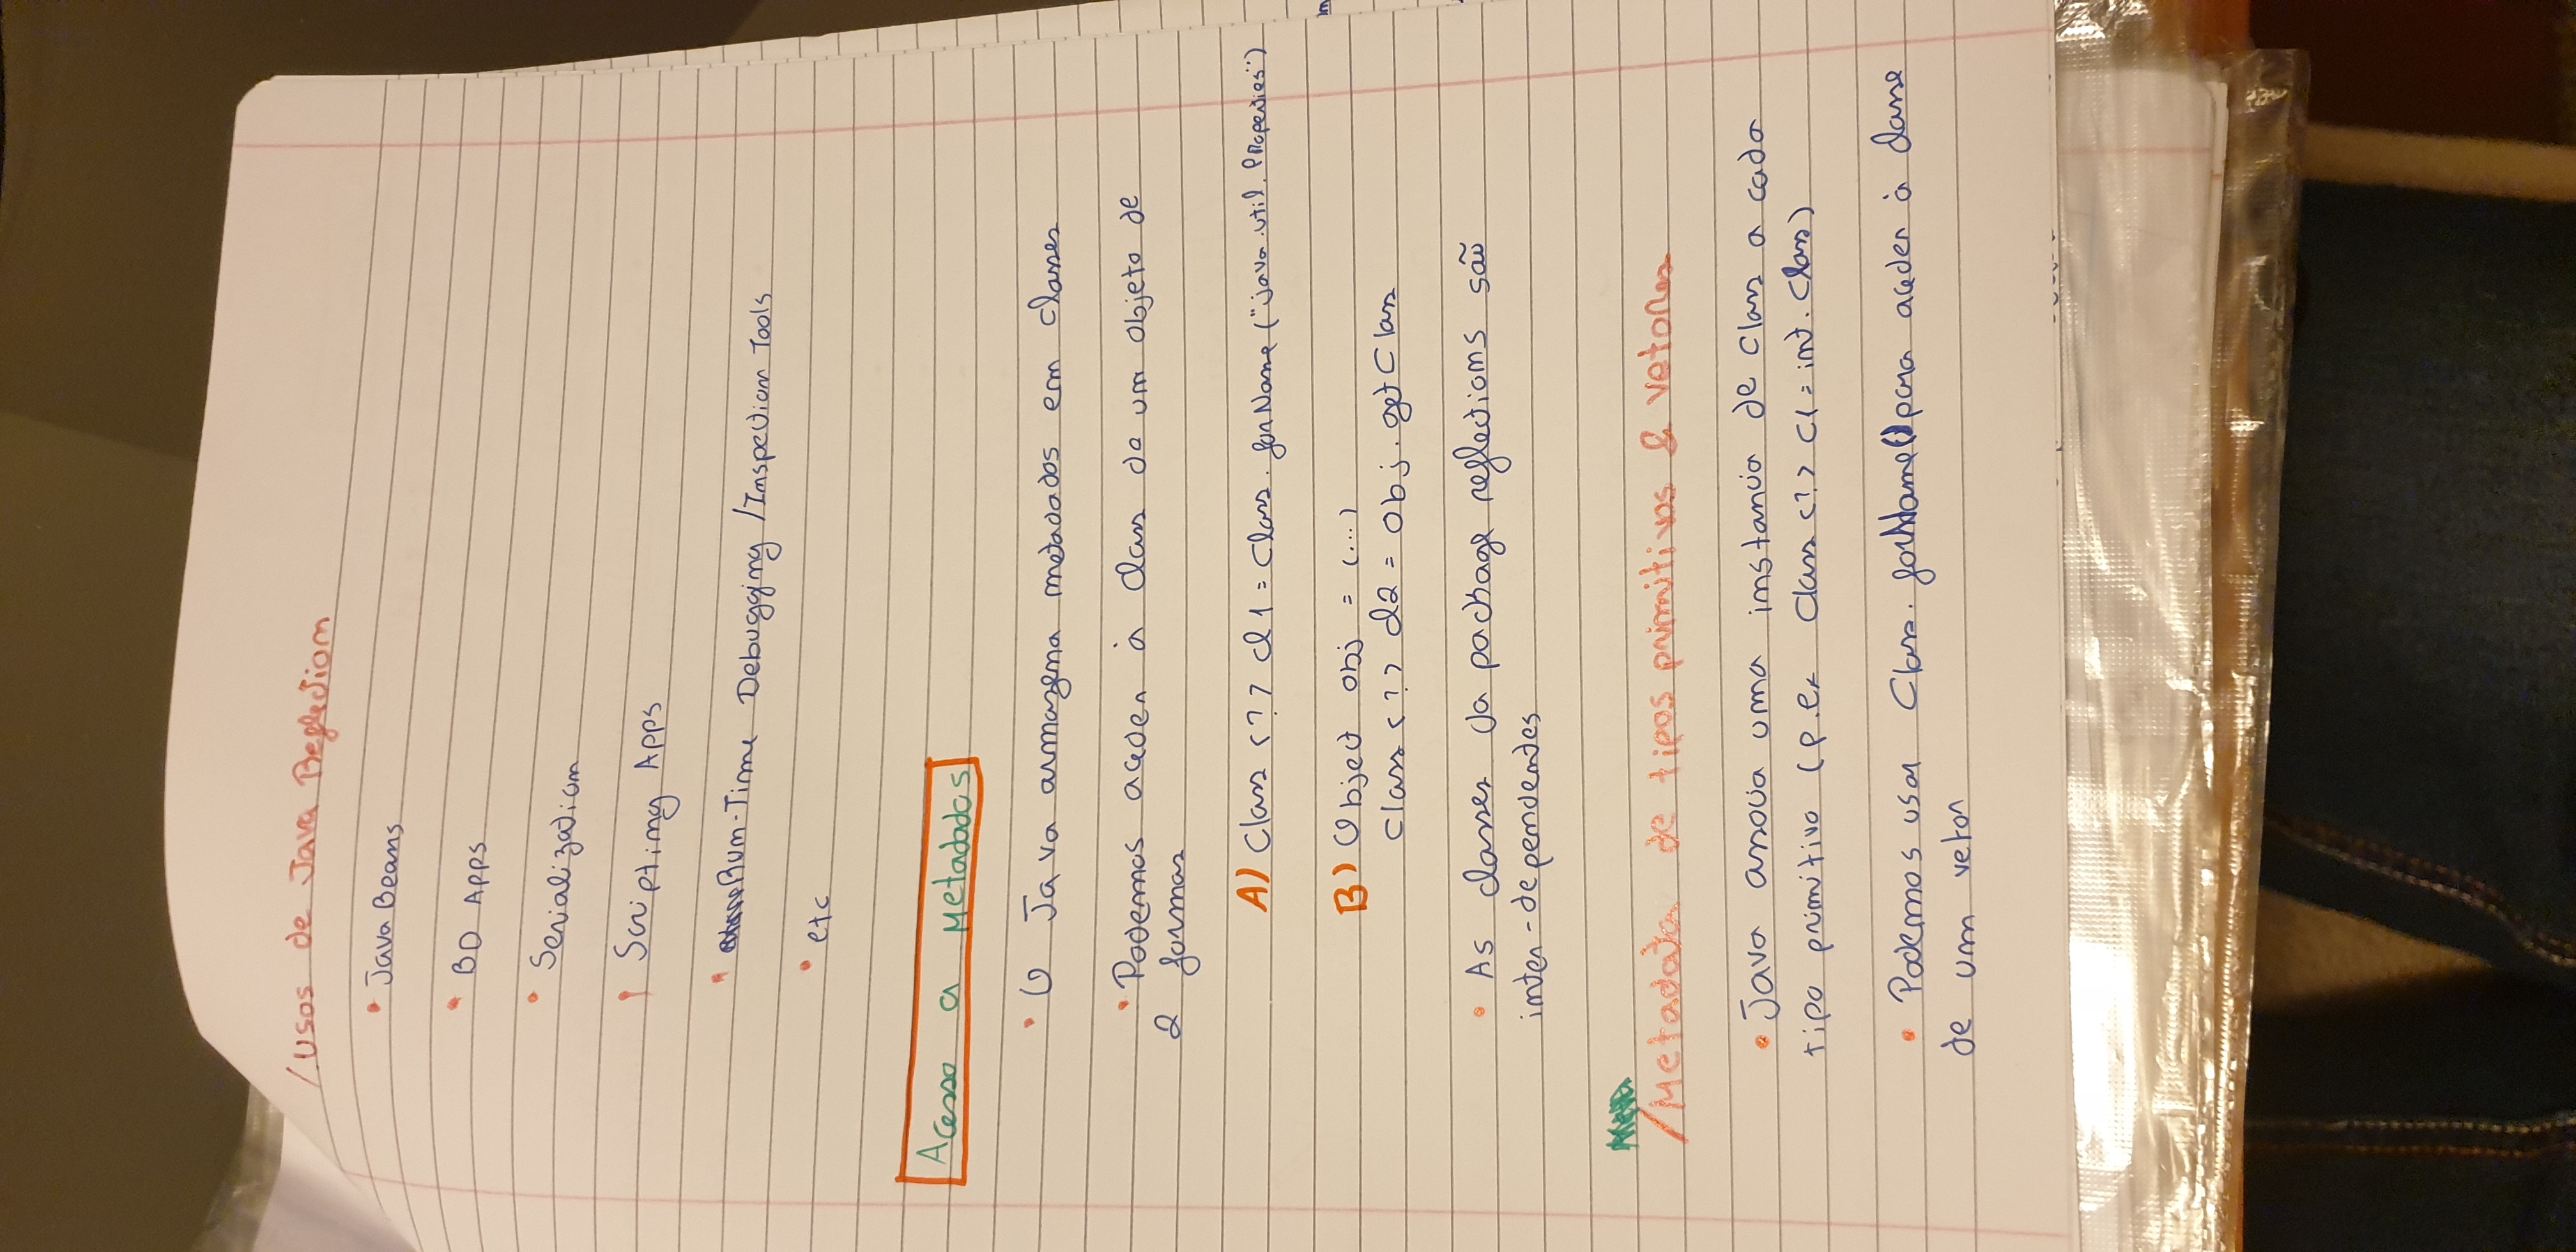 /Usos de Java Reflection
• Java Beans
• BD Apps
• Serialization
• Scripting Apps
• Run-Time Debugging /Inspection Tools
• etc
Acesso a Metadados
• O Java armazena metadados em classes
• Podemos aceder à Class de um objeto de
2 formas
A) Class <?> cl1 = Class.forName("java.util.Properties")
B) Object obj = (...)
Class <?> cl2 = obj.getClass
• As classes da package reflections são
inter-dependentes
/Metadata de tipos primitivos & vetores
• Java associa uma instancia de Class a cada
tipo primitivo (p.ex Class <?> c1 = int.Class)
• Podemos usar Class.forName() para aceder à classe
de um vetor